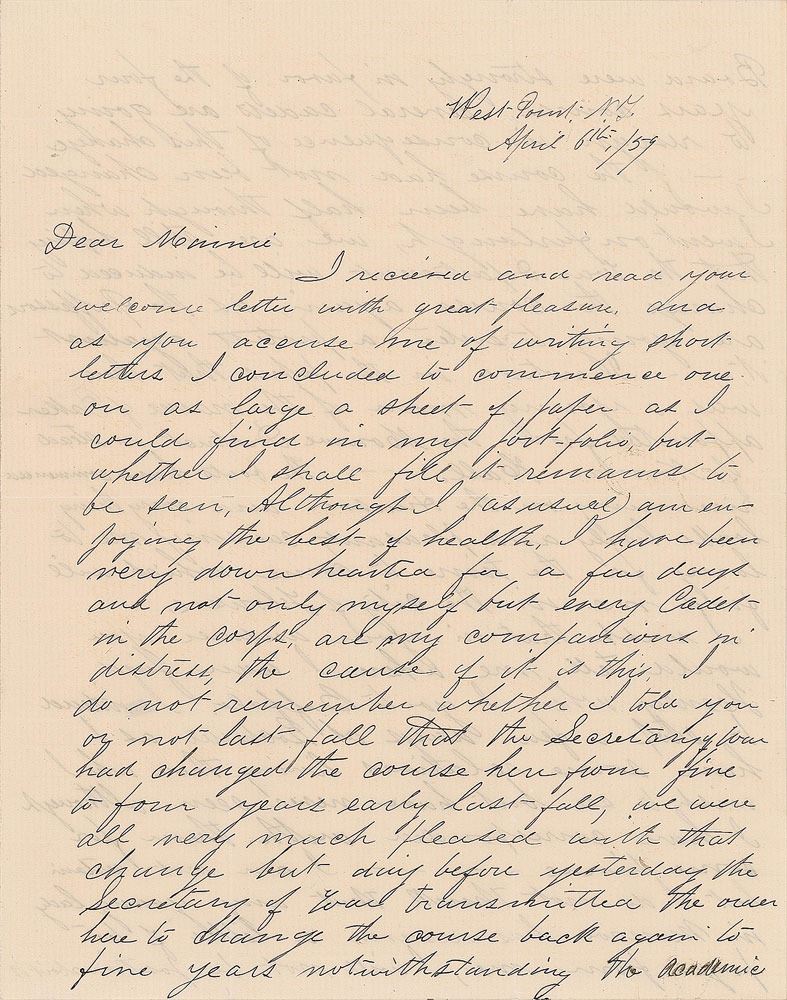 West-Point, N.Y.
April 6th, /59
Dear Minnie
I recieved and read your
welcome letter with great pleasure, and
as you accuse me of writing short
letters I concluded to commence one
on as large a sheet of paper as I
could find in my port-folio, but
whether I shall fill it remains to
be seen, Although I (as usual) am en-
joying the best of health, I have been
very downhearted for a few days
and not only myself but every Cadet
in the corps, are my companions in
distress, the cause of it is this, I
do not remember whether I told you
or not last fall that the Secretary of War
had changed the course here from five
to four years early last fall, we were
all very much pleased with that
change but day before yesterday the
Secretary of War transmitted the order
here to change the course back again to
five years notwithstanding the academic